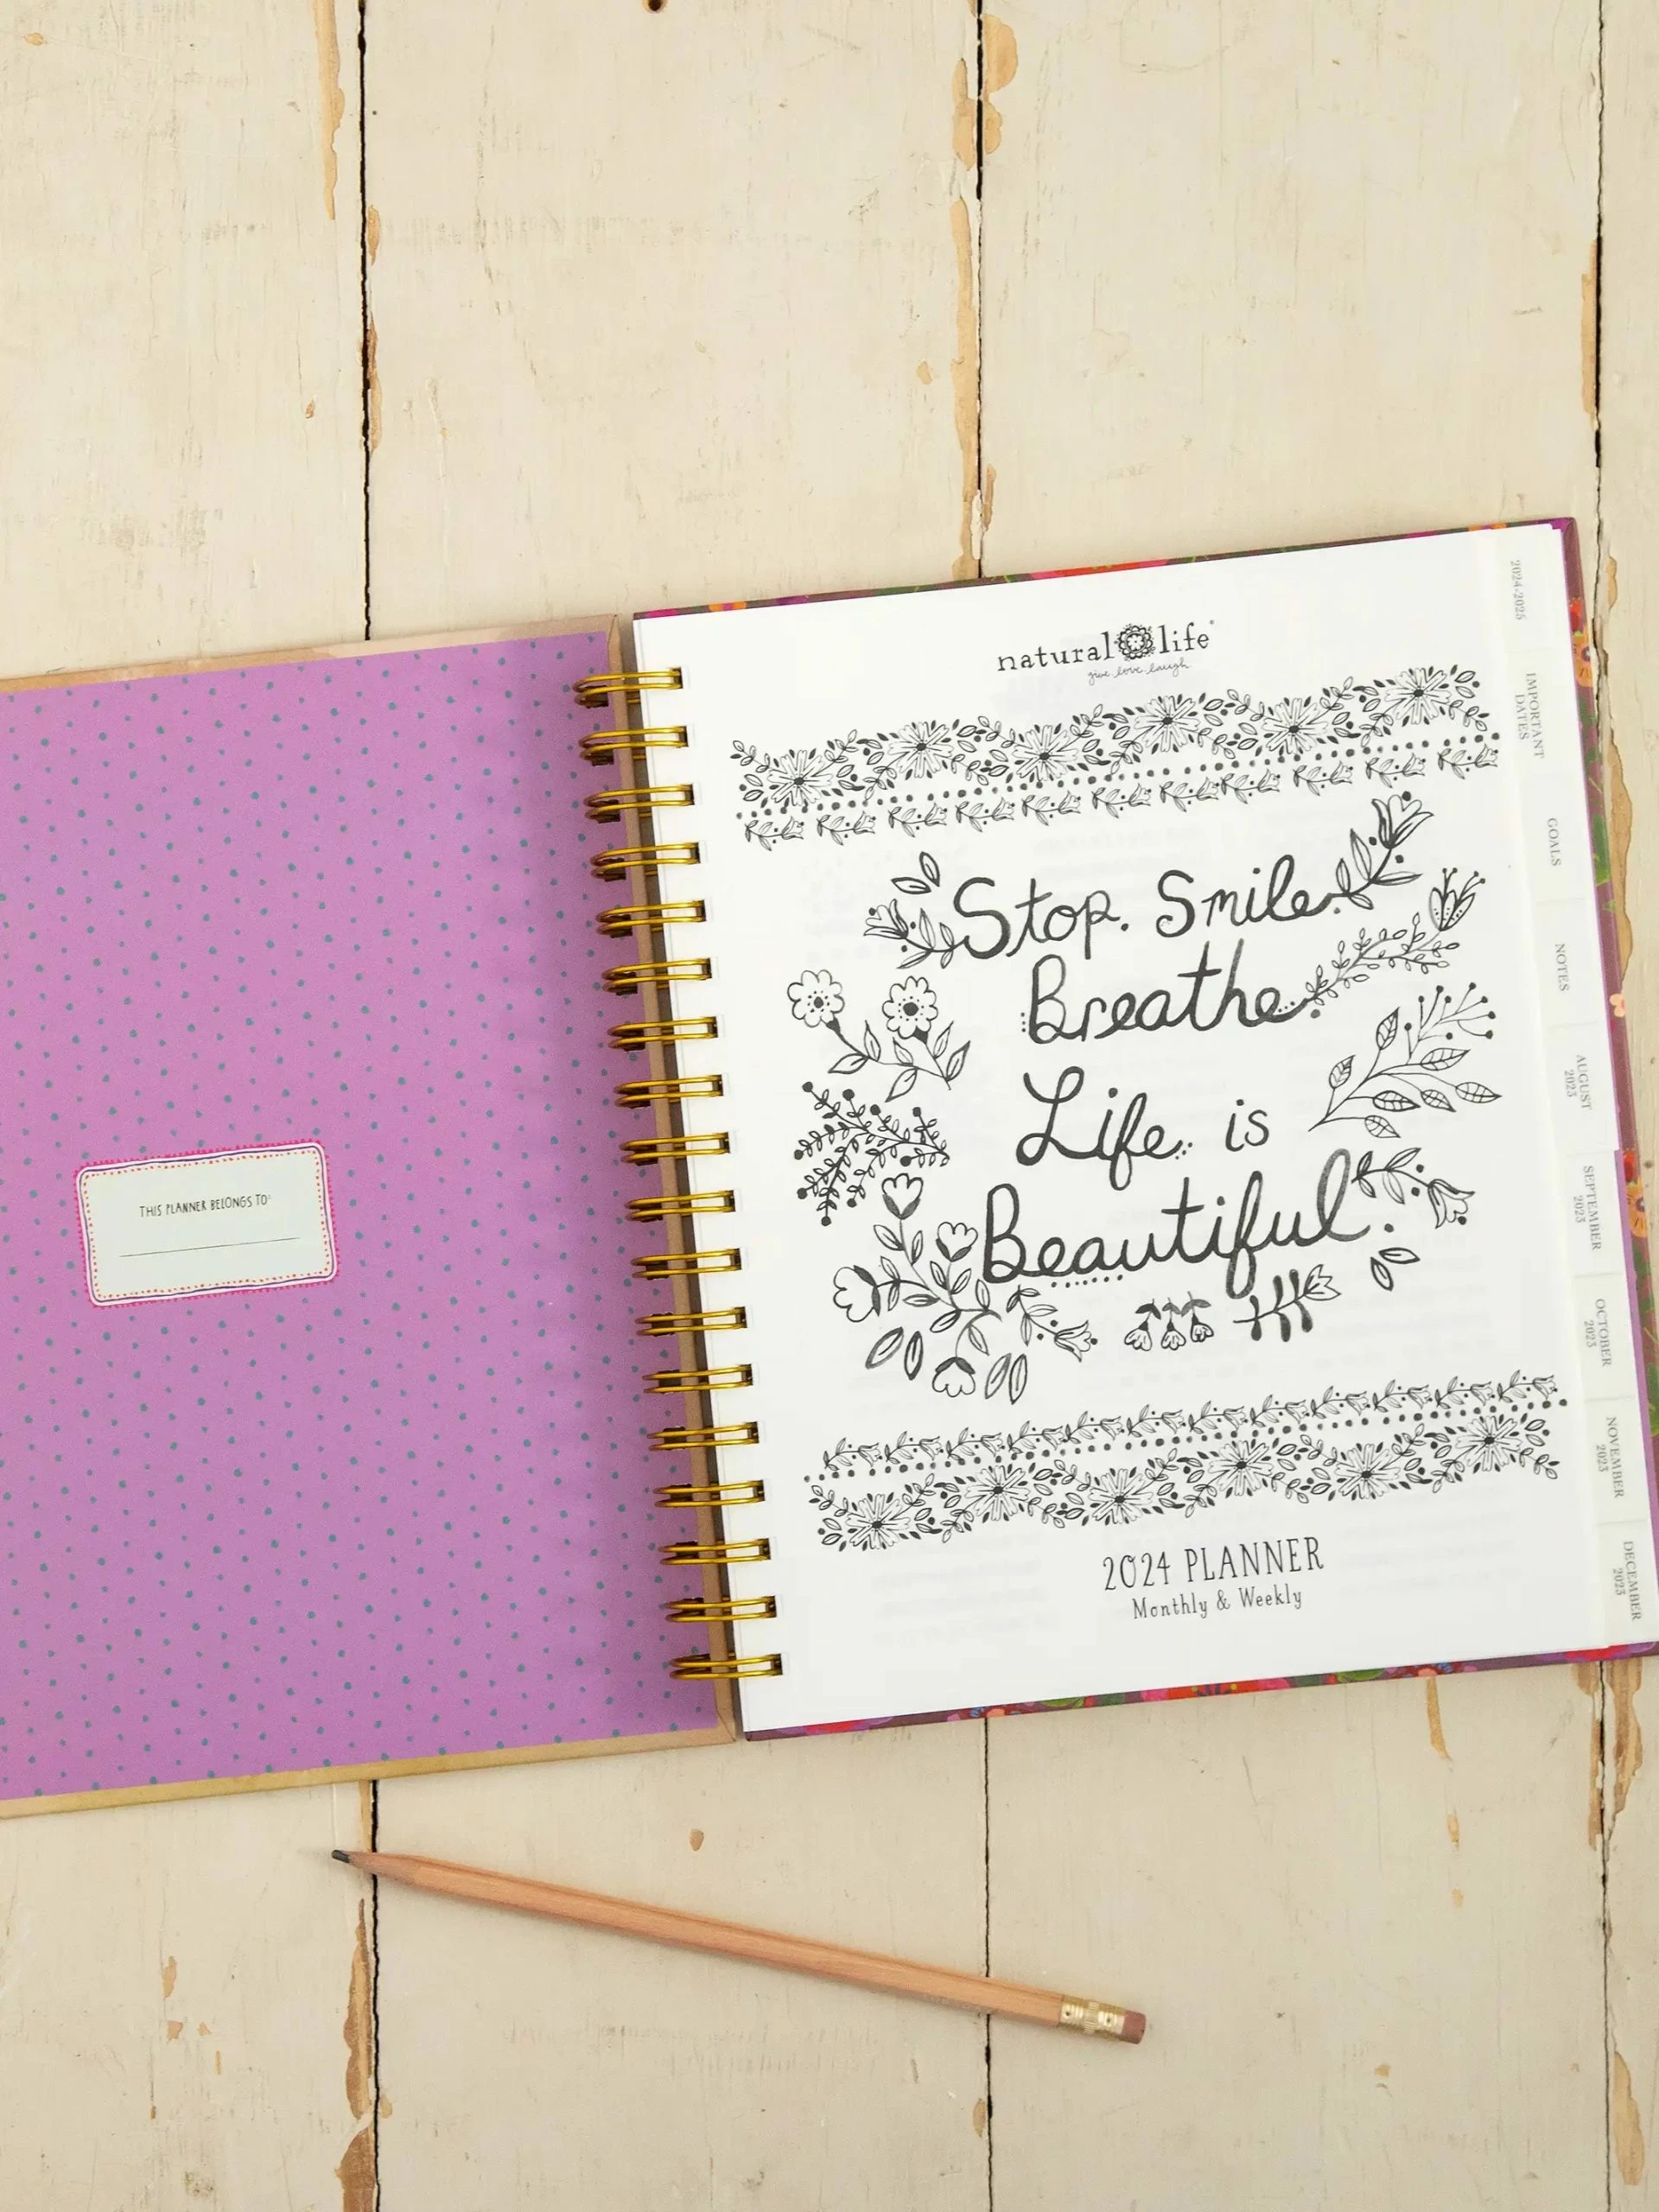 THIS PLANNER BELONGS TO:
natural life
give love laugh
Stop. Smile.
Breathe.
Life is
Beautiful.
2024 PLANNER
Monthly & Weekly
2024-2025
IMPORTANT
DATES
GOALS
NOTES
AUGUST
2023
SEPTEMBER
2023
OCTOBER
2023
NOVEMBER
2023
DECEMBER
2023